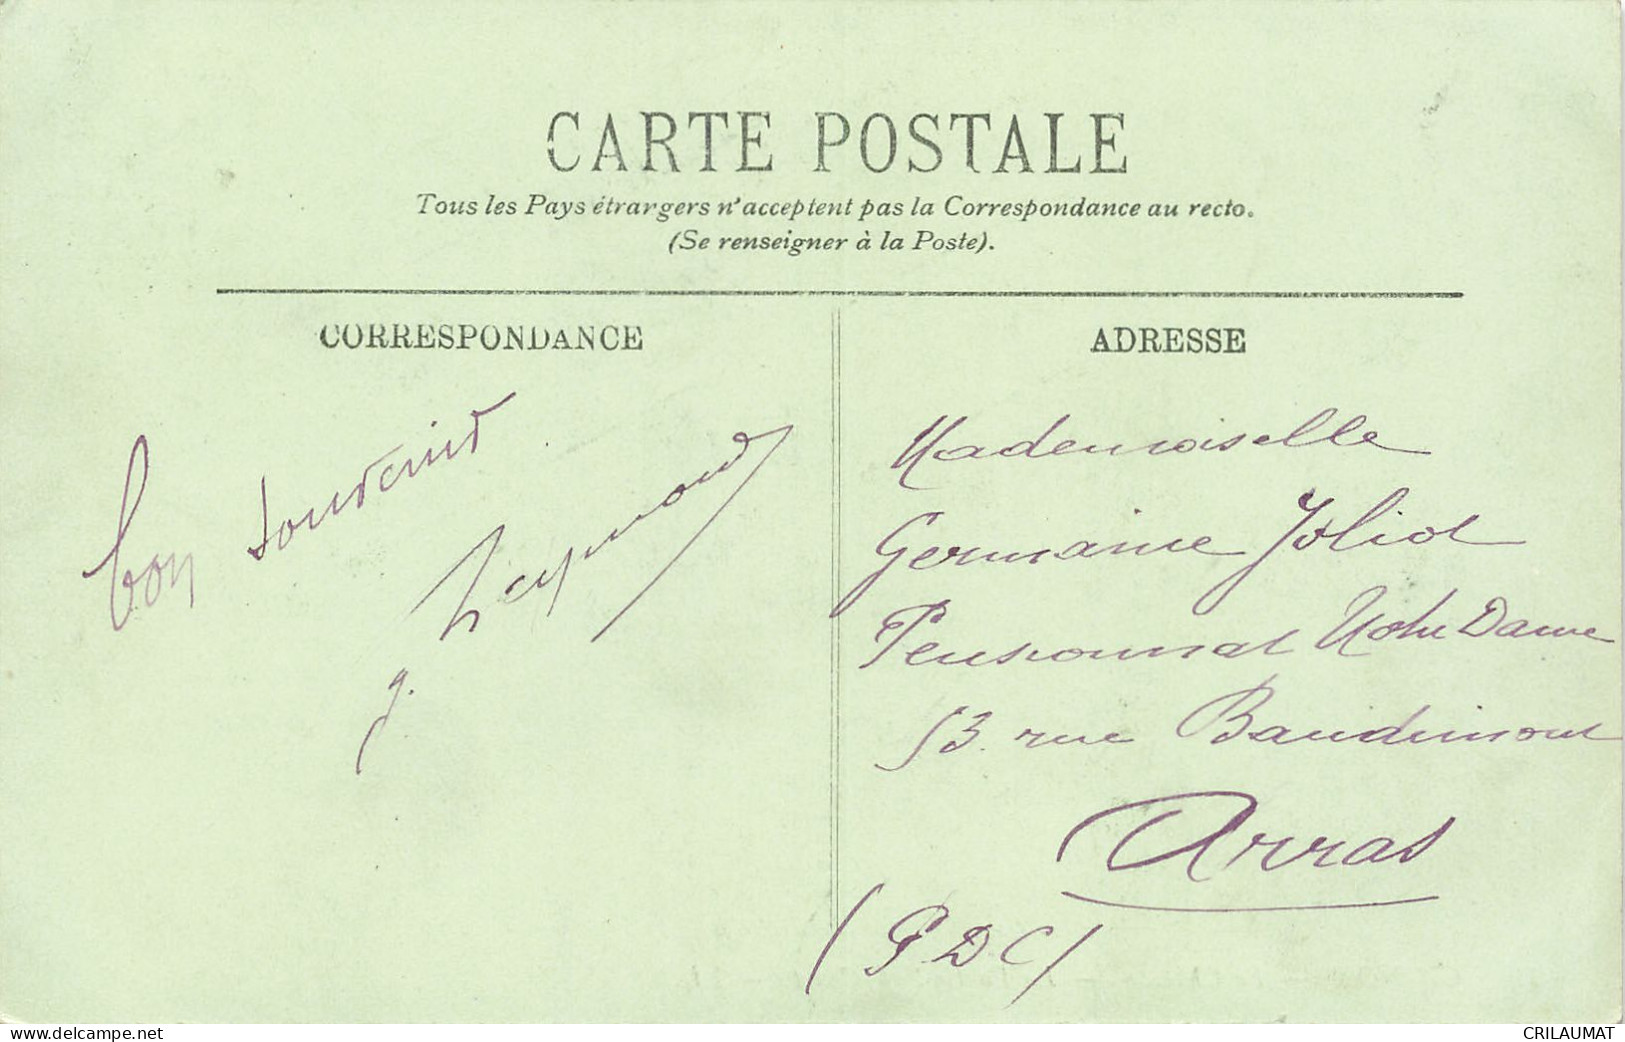 CARTE POSTALE
Tous les Pays étrangers n'acceptent pas la Correspondance au recto.
(Se renseigner à la Poste).
CORRESPONDANCE
bon souvenir
Raymond
J.
ADRESSE
Mademoiselle
Germaine Joliot
Pensionnat Notre Dame
53 rue Baudimont
Arras
(P D C)
www.delcampe.net
CRILAUMAT